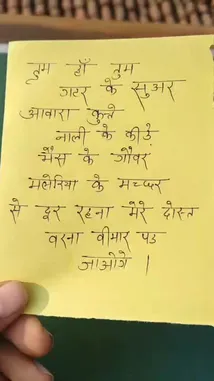 तुम हाँ तुम
गटर के सुअर
आवारा कुत्ते
नाली के कीड़े
भैंस के गोबर
मलेरिया के मच्छर
से दूर रहना मेरे दोस्त
वरना बीमार पड
जाओगे ।